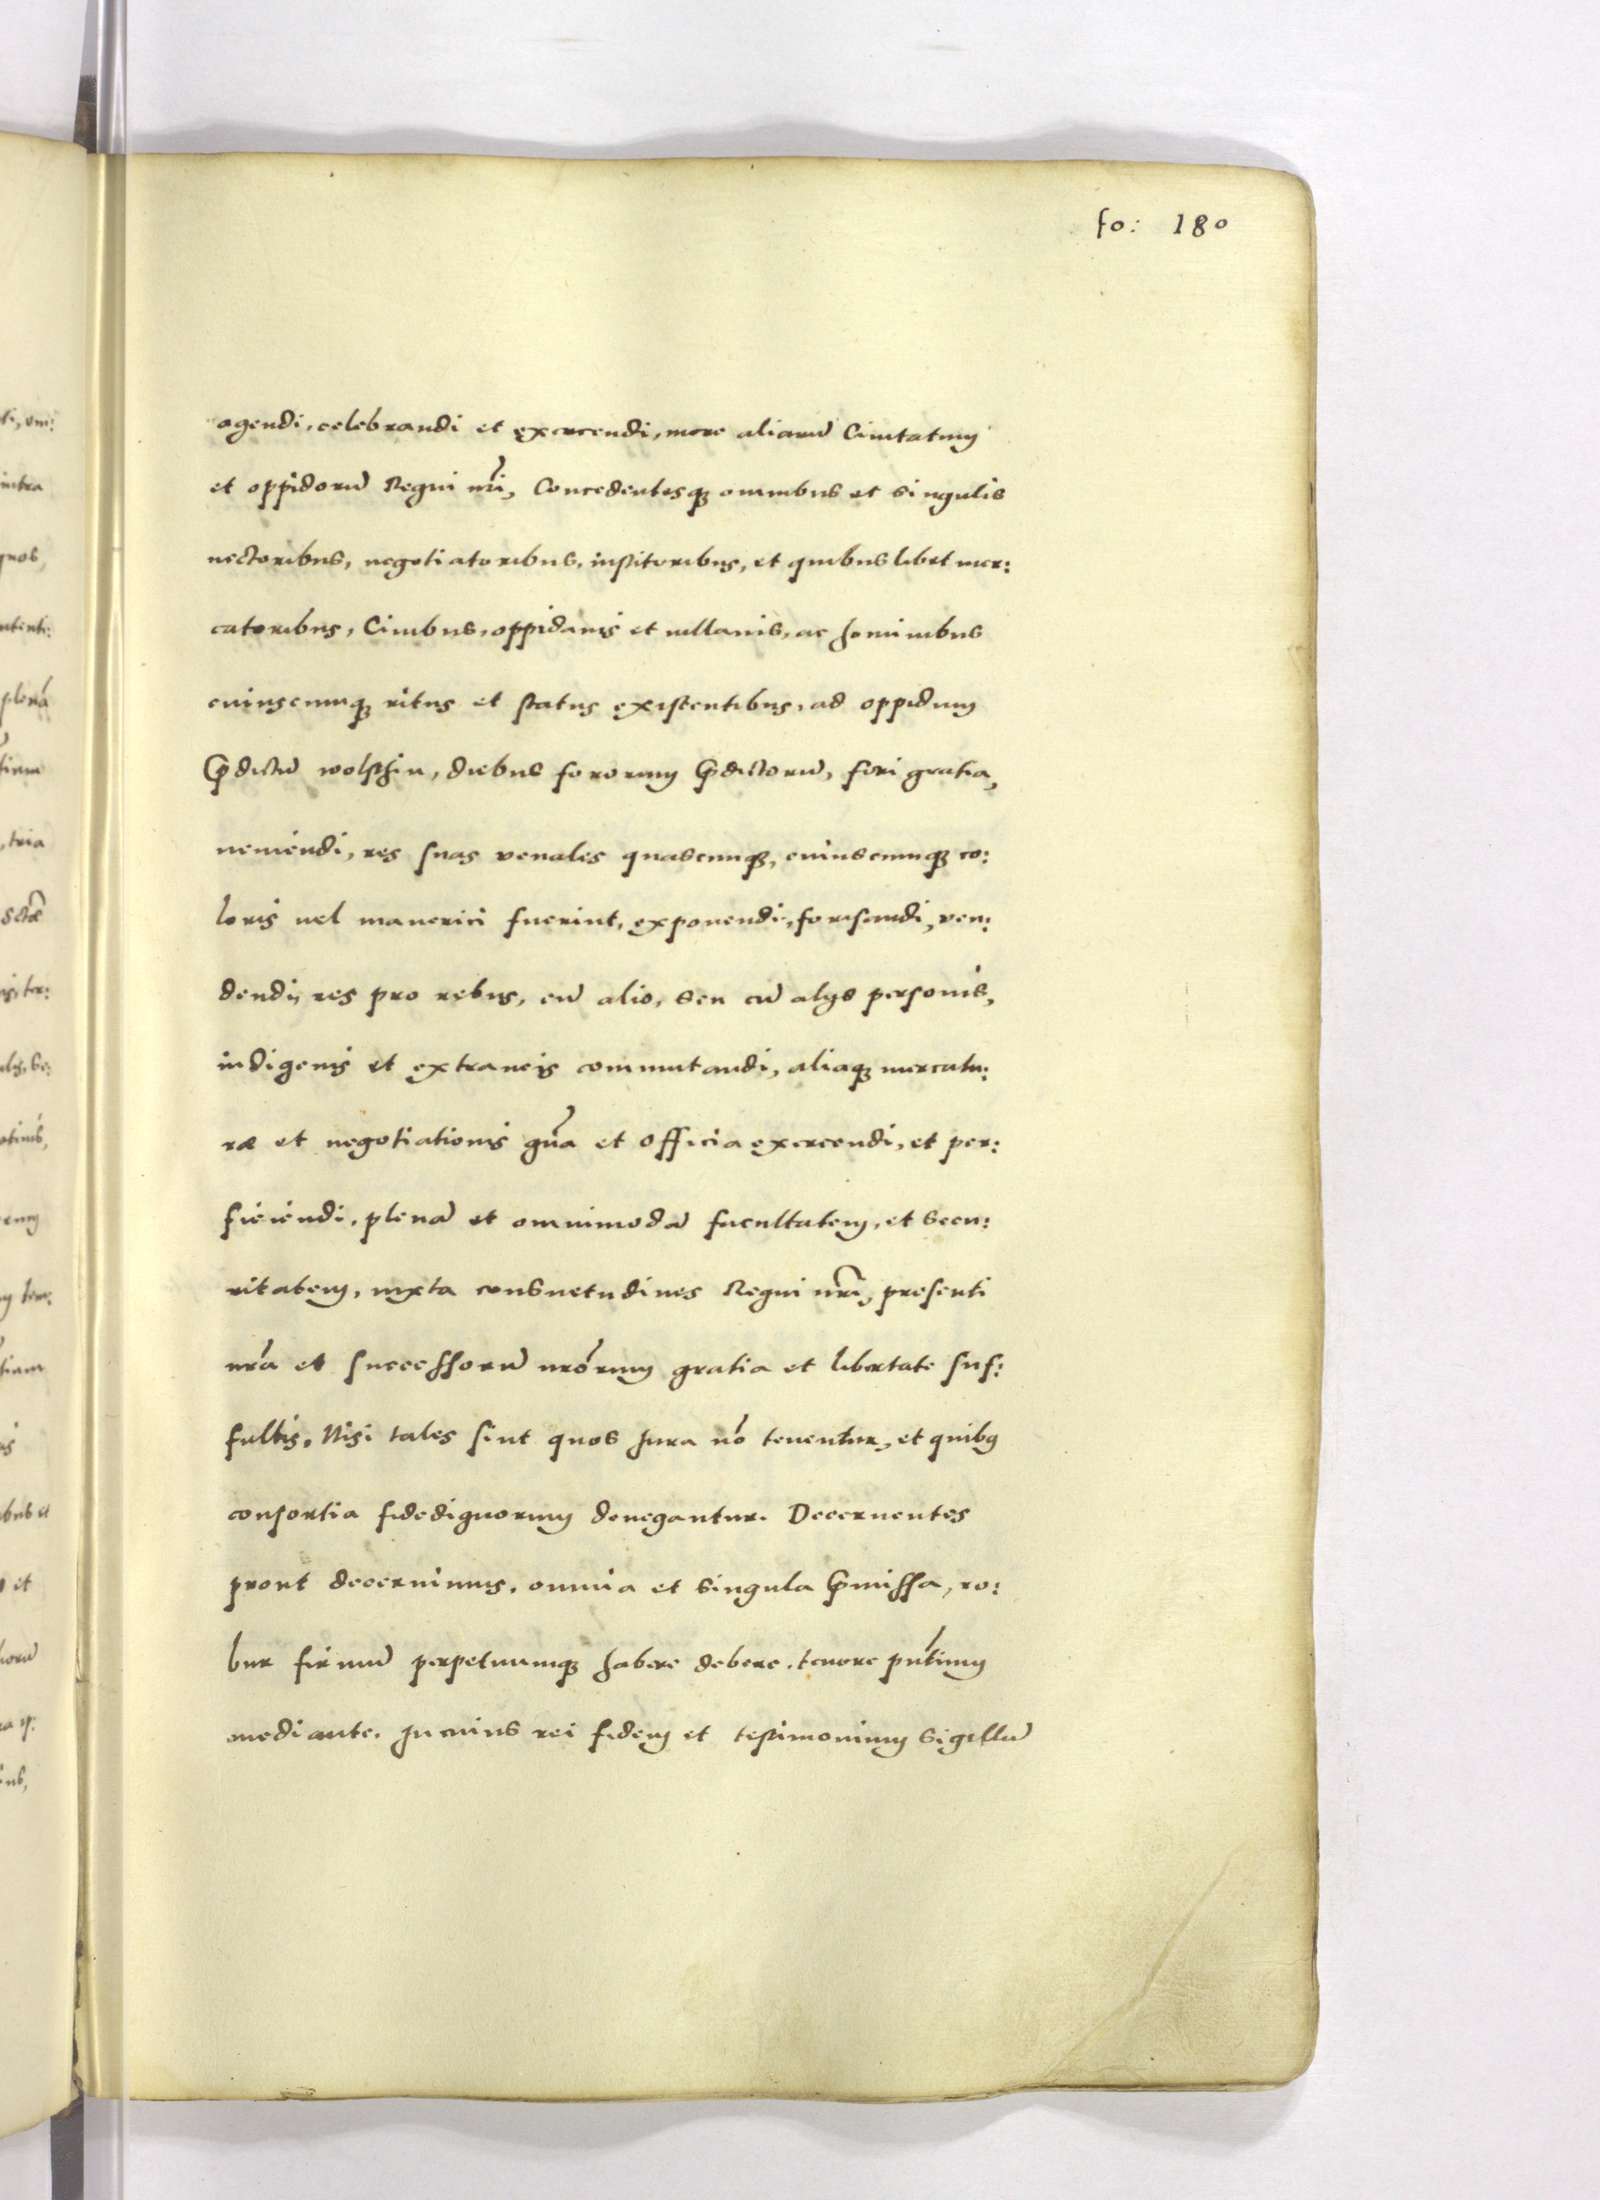 fo: 180
agendi, celebrandi et exercendi, more aliarū Ciuitatum
et oppidorū Regni nr̄i, Concedentesqꝫ omnibus et singulis
uectoribus, negotiatoribus, institoribus, et quibuslibet mer:
catoribus, Ciuibus, oppidanis et uillanis, ac hominibus
cuiuscunqꝫ ritus et status existentibus, ad oppidum
p̄dictū wolsthin, diebus fororum p̄dictorū, fori gratia,
ueniendi, res suas venales quascunqꝫ, cuiuscunqꝫ co:
loris uel maneriei fuerint, exponendi, forisandi, ven:
dendi, res pro rebus, cū alio, seu cū alijs personis,
indigenis et extraneis commutandi, aliaqꝫ mercatu:
ræ et negotiationis gn̄a et officia exercendi, et per:
ficiendi, plenā et omnimodā facultatem, et secu:
ritatem, iuxta consuetudines Regni nr̄i, presenti
nr̄a et successorū nrōrum gratia et libertate suf:
fultis, Nisi tales sint quos Jura nō tuentur, et quibꝰ
consortia fidedignorum denegantur. Decernentes
prout decernimus, omnia et singula p̄missa, ro:
bur firmū perpetuumqꝫ habere debere, tenore pn̄tium
mediante. In cuius rei fidem et testimonium sigillū